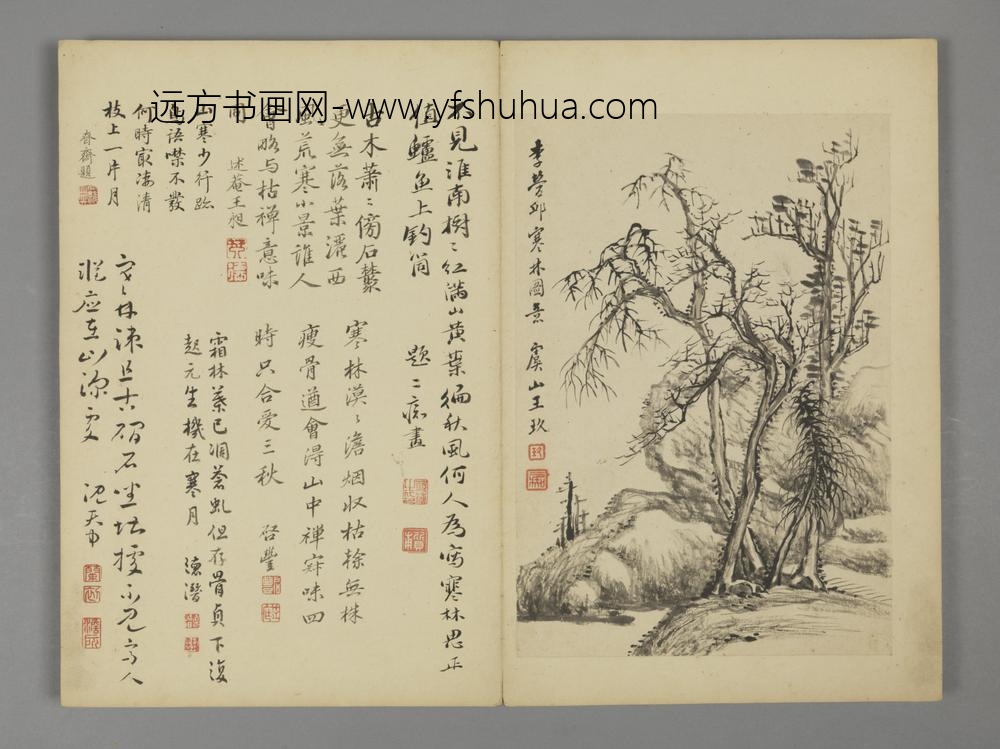 远方书画网-www.yfshuhua.com
李營邱寒林圖意 虞山王玖
不見淮南樹〻紅滿山黃葉徧秋風何人為寫寒林思正
值鱸魚上釣筒 題二痴畫
古木蕭〻傍石叢
更無落葉灑西
風荒寒小景誰人
會略与枯禅意味
同 述菴王昶
寒林漠〻澹烟收枯榦無株
瘦骨遒會得山中禅寂味四
時只合愛三秋 啓豐
山寒少行跡
鳥語噤不發
何時最凄清
枝上一片月
齋題
霜林葉已凋蒼虬但存骨貞下復
起元生機在寒月 德潛
林疎且古 石坐 不見 人
應在山深